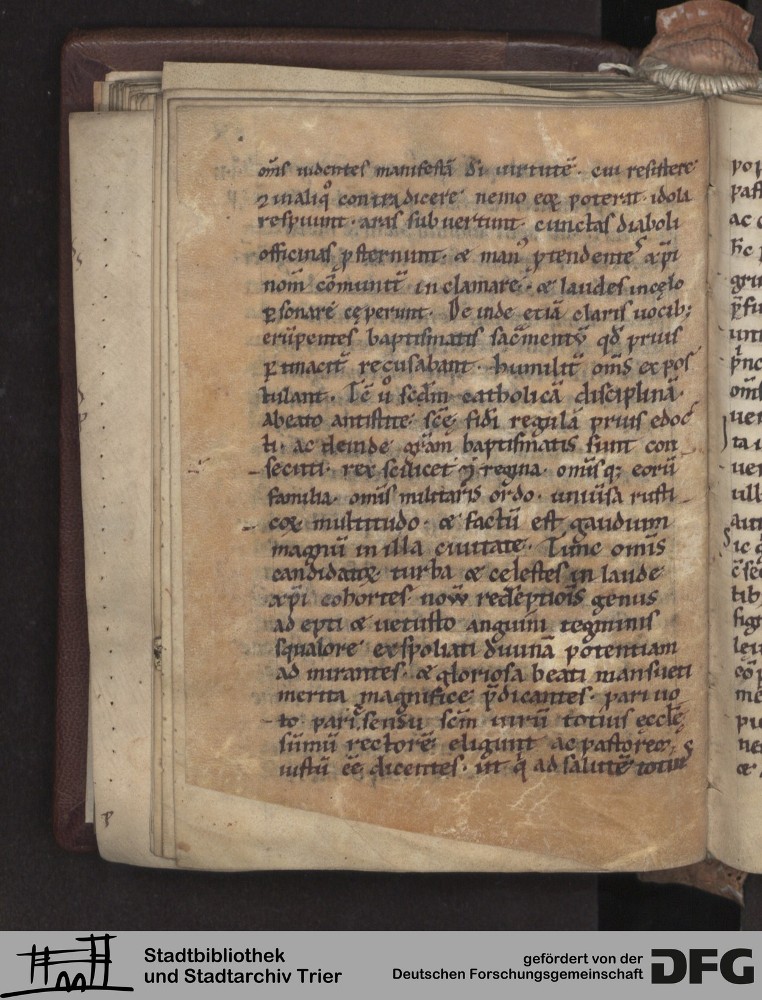 om̅s uidentes manifestā di̅ uirtutē · cui resistere
ꝛ in aliq̊ contradicere nemo eoꝝ poterat · idola
respuunt · aras subuertunt · cunctas diaboli
officinas p̱sternunt · & man᷒ p̱tendentes xp̅i
nom̅ cōmunit̅ inclamare · & laudes in cęlo
ꝑsonare cęperunt · De inde etiā claris uocib;
erūpentes baptismatis sac̅mentū qd̅ prius
ꝑtinacit̅ recusabant · humilit̅ om̅s expos
tulant · Tc̅ ů scdm̅ catholicā disciplinā ·
a beato antistite · sc̅ę fidi regulā prius edoc
ti · ac deinde gr̅am baptismatis sunt con
secuti · rex scilicet ꝛ regina · omīsq; eorū
familia · omīs militaris ordo · uniuīsa rusti
coꝝ multitudo · & factū est gaudium
magnū in illa ciuitate · Tunc omīs
candidatoꝝ turba & celestes in laude
xp̅i cohortes nouū redēptiōis genus
adepti & uetusto anguini tegminis
squalore exspoliati diuinā potentiam
ad mirantes · & gloriosa beati mansueti
merita magnifice p̅dicantes · pari uo
to pariq̅ sensu scm̅ uirū totius eccl̅ę
sūmū rectorē eligunt ac pastorem ·
iustū ee̅ dicentes · ut q̇ ad salutē totius
Stadtbibliothek
und Stadtarchiv Trier
gefördert von der
Deutschen Forschungsgemeinschaft
DFG